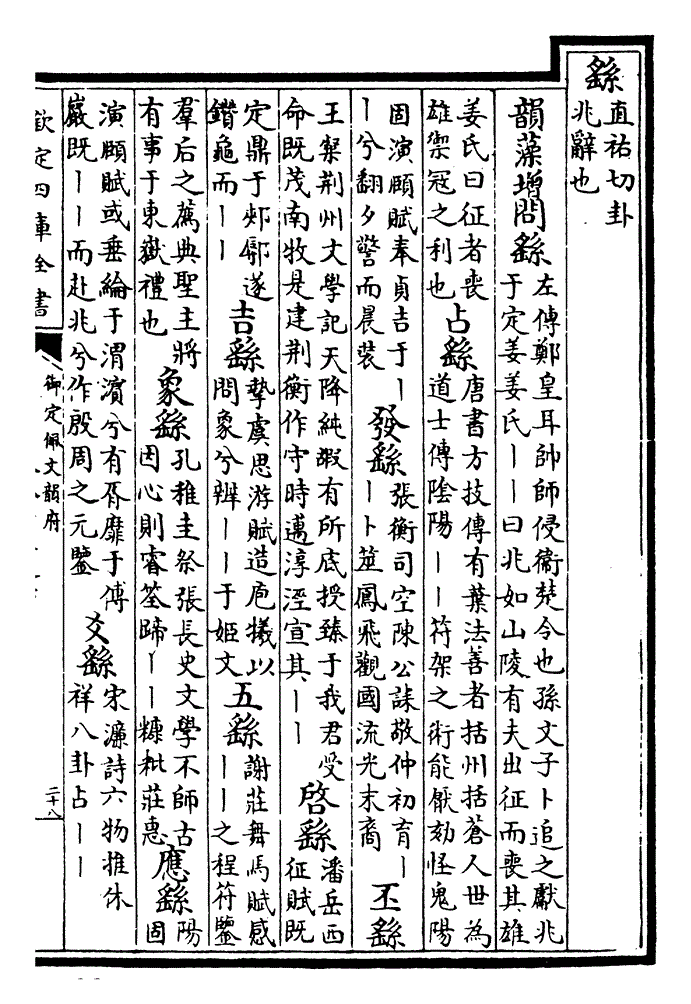 繇直祐切卦
兆辭也
韻藻增問繇左傳鄭皇耳帥師侵衞楚令也孫文子卜追之獻兆
于定姜姜氏丨丨曰兆如山陵有夫出征而喪其雄
姜氏曰征者喪
雄禦寇之利也
占繇唐書方技傳有葉法善者括州括蒼人世為
道士傳陰陽丨丨符架之術能厭劾怪鬼陽
固演頤賦奉貞吉于丨
丨兮翻夕警而晨裝
發繇張衡司空陳公誄敬仲初育丨
丨卜筮鳳飛觀國流光末裔
丕繇
王粲荆州文學記天降純嘏有所底授臻于我君受
命既茂南牧是建荆衡作守時邁淳涇宣其丨丨
啓繇潘岳西
征賦既
定鼎于郟鄏遂
鑚龜而丨丨
吉繇摯虞思游賦造庖犧以
問象兮辨丨丨于姬文
五繇謝莊舞馬賦感
丨丨之程符鑒
羣后之薦典聖主將
有事于東嶽禮也
象繇孔稚圭祭張長史文學不師古
因心則睿筌蹄丨丨糠粃莊惠
應繇陽
固
演頤賦或垂綸于渭濱兮有胥靡于傅
巖既丨丨而赴兆兮作殷周之元鑒
爻繇宋濂詩六物推休
祥八卦占丨丨
欽定四庫全書
御定佩文韻府
二十八